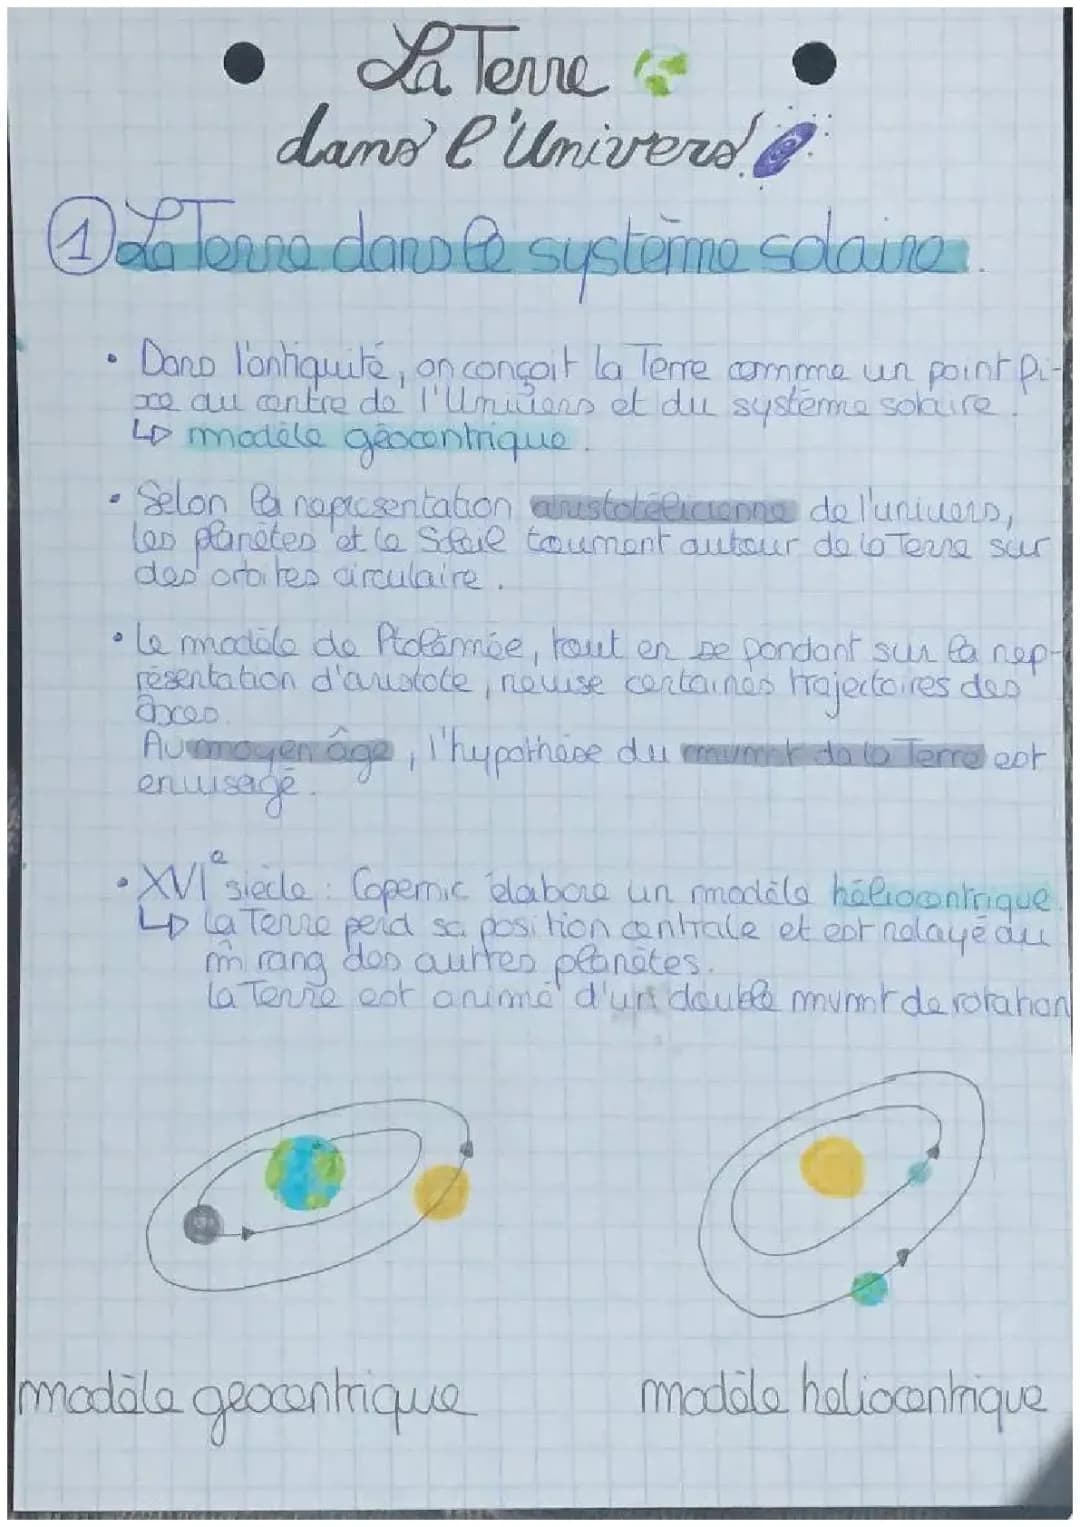 La Terre
dans l'Univers
1 La Terre dans le système solaire.
• Dans l'antiquité, on conçoit la Terre comme un point fi-
xe au centre de l'Univers et du système solaire.
↳ modèle géocentrique.
• Selon la représentation aristotélicienne de l'univers,
les planètes et le Soleil tournent autour de la Terre sur
des orbites circulaire.
• Le modèle de Ptolémée, tout en se pondant sur la rep-
résentation d'aristote, revise certaines trajectoires des
axes.
Au moyen âge, l'hypothèse du mvmnt de la Terre est
envisagé.
• XVIe siècle : Copernic élabore un modèle héliocentrique.
↳ La Terre perd sa position centrale et est relayé au
m̂ rang des autres planètes.
La Terre est animé d'un double mvmnt de rotation
modèle geocentrique
modèle heliocentrique